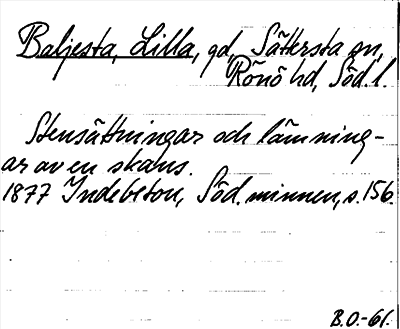 Baljesta, Lilla, gd, Sättersta sn,
Rönö hd, Söd. l.
Stensättningar och lämning-
ar av en skans.
1877 Indebetou, Söd. minnen, s. 156.
B.O.-61.